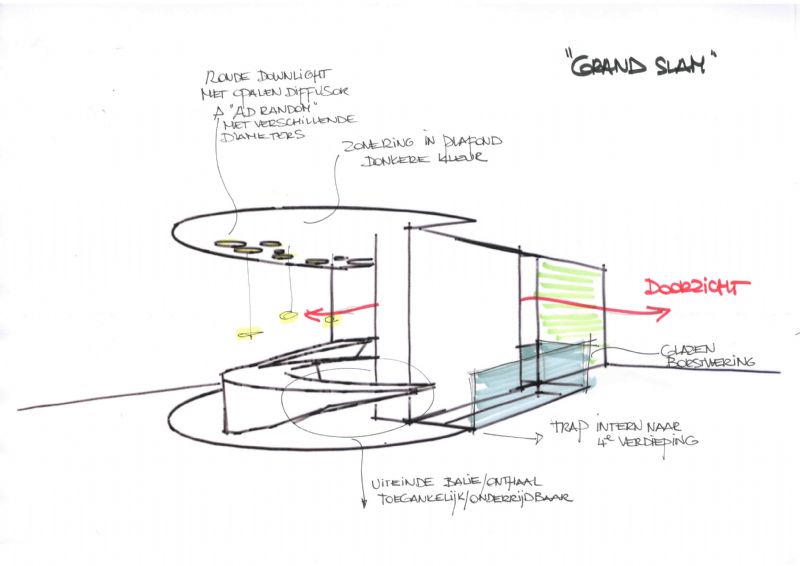 "GRAND SLAM"
RONDE DOWNLIGHT
MET OPALEN DIFFUSOR
A "AD RANDOM"
MET VERSCHILLENDE
DIAMETERS
ZONERING IN PLAFOND
DONKERE KLEUR
DOORZICHT
GLAZEN
BORSTWERING
TRAP INTERN NAAR
4e VERDIEPING
UITEINDE BALIE/ONTHAAL
TOEGANKELIJK/ONDERRIJDBAAR